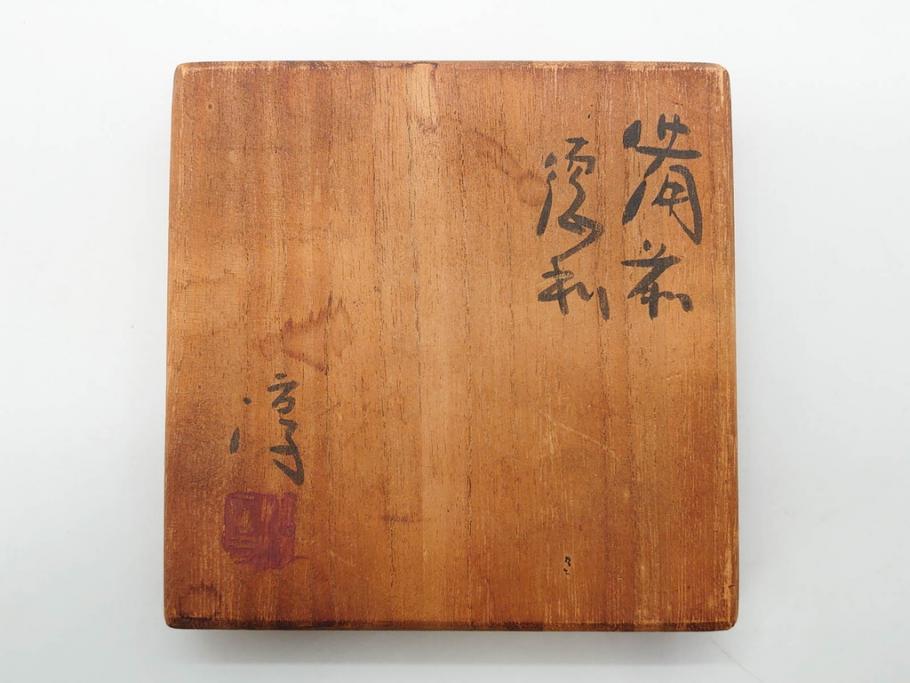 備前
德利
淳